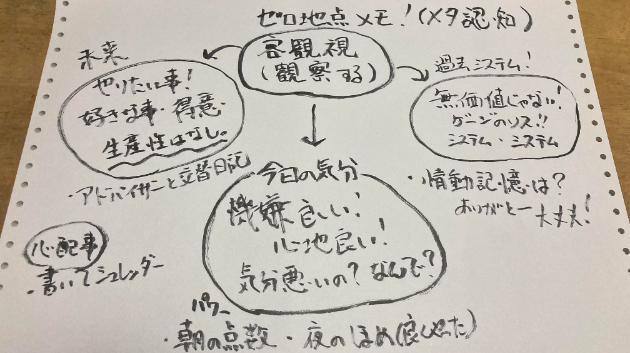 ゼロ地点メモ！(メタ認知)
客観視
(観察する)
未来
やりたい事！
好きな事・得意・
生産性はなし。
・アドバイザーと交替日記
過去システム！
無価値じゃない！
ゲージのソス!!
システム・システム
・情動記憶は？
ありがとー大丈夫！
今日の気分
機嫌良い！
心地良い！
気分悪いの？なんで？
心配事
・書いてシュレッダー
パワー
・朝の点数・夜のほめ(良かった)